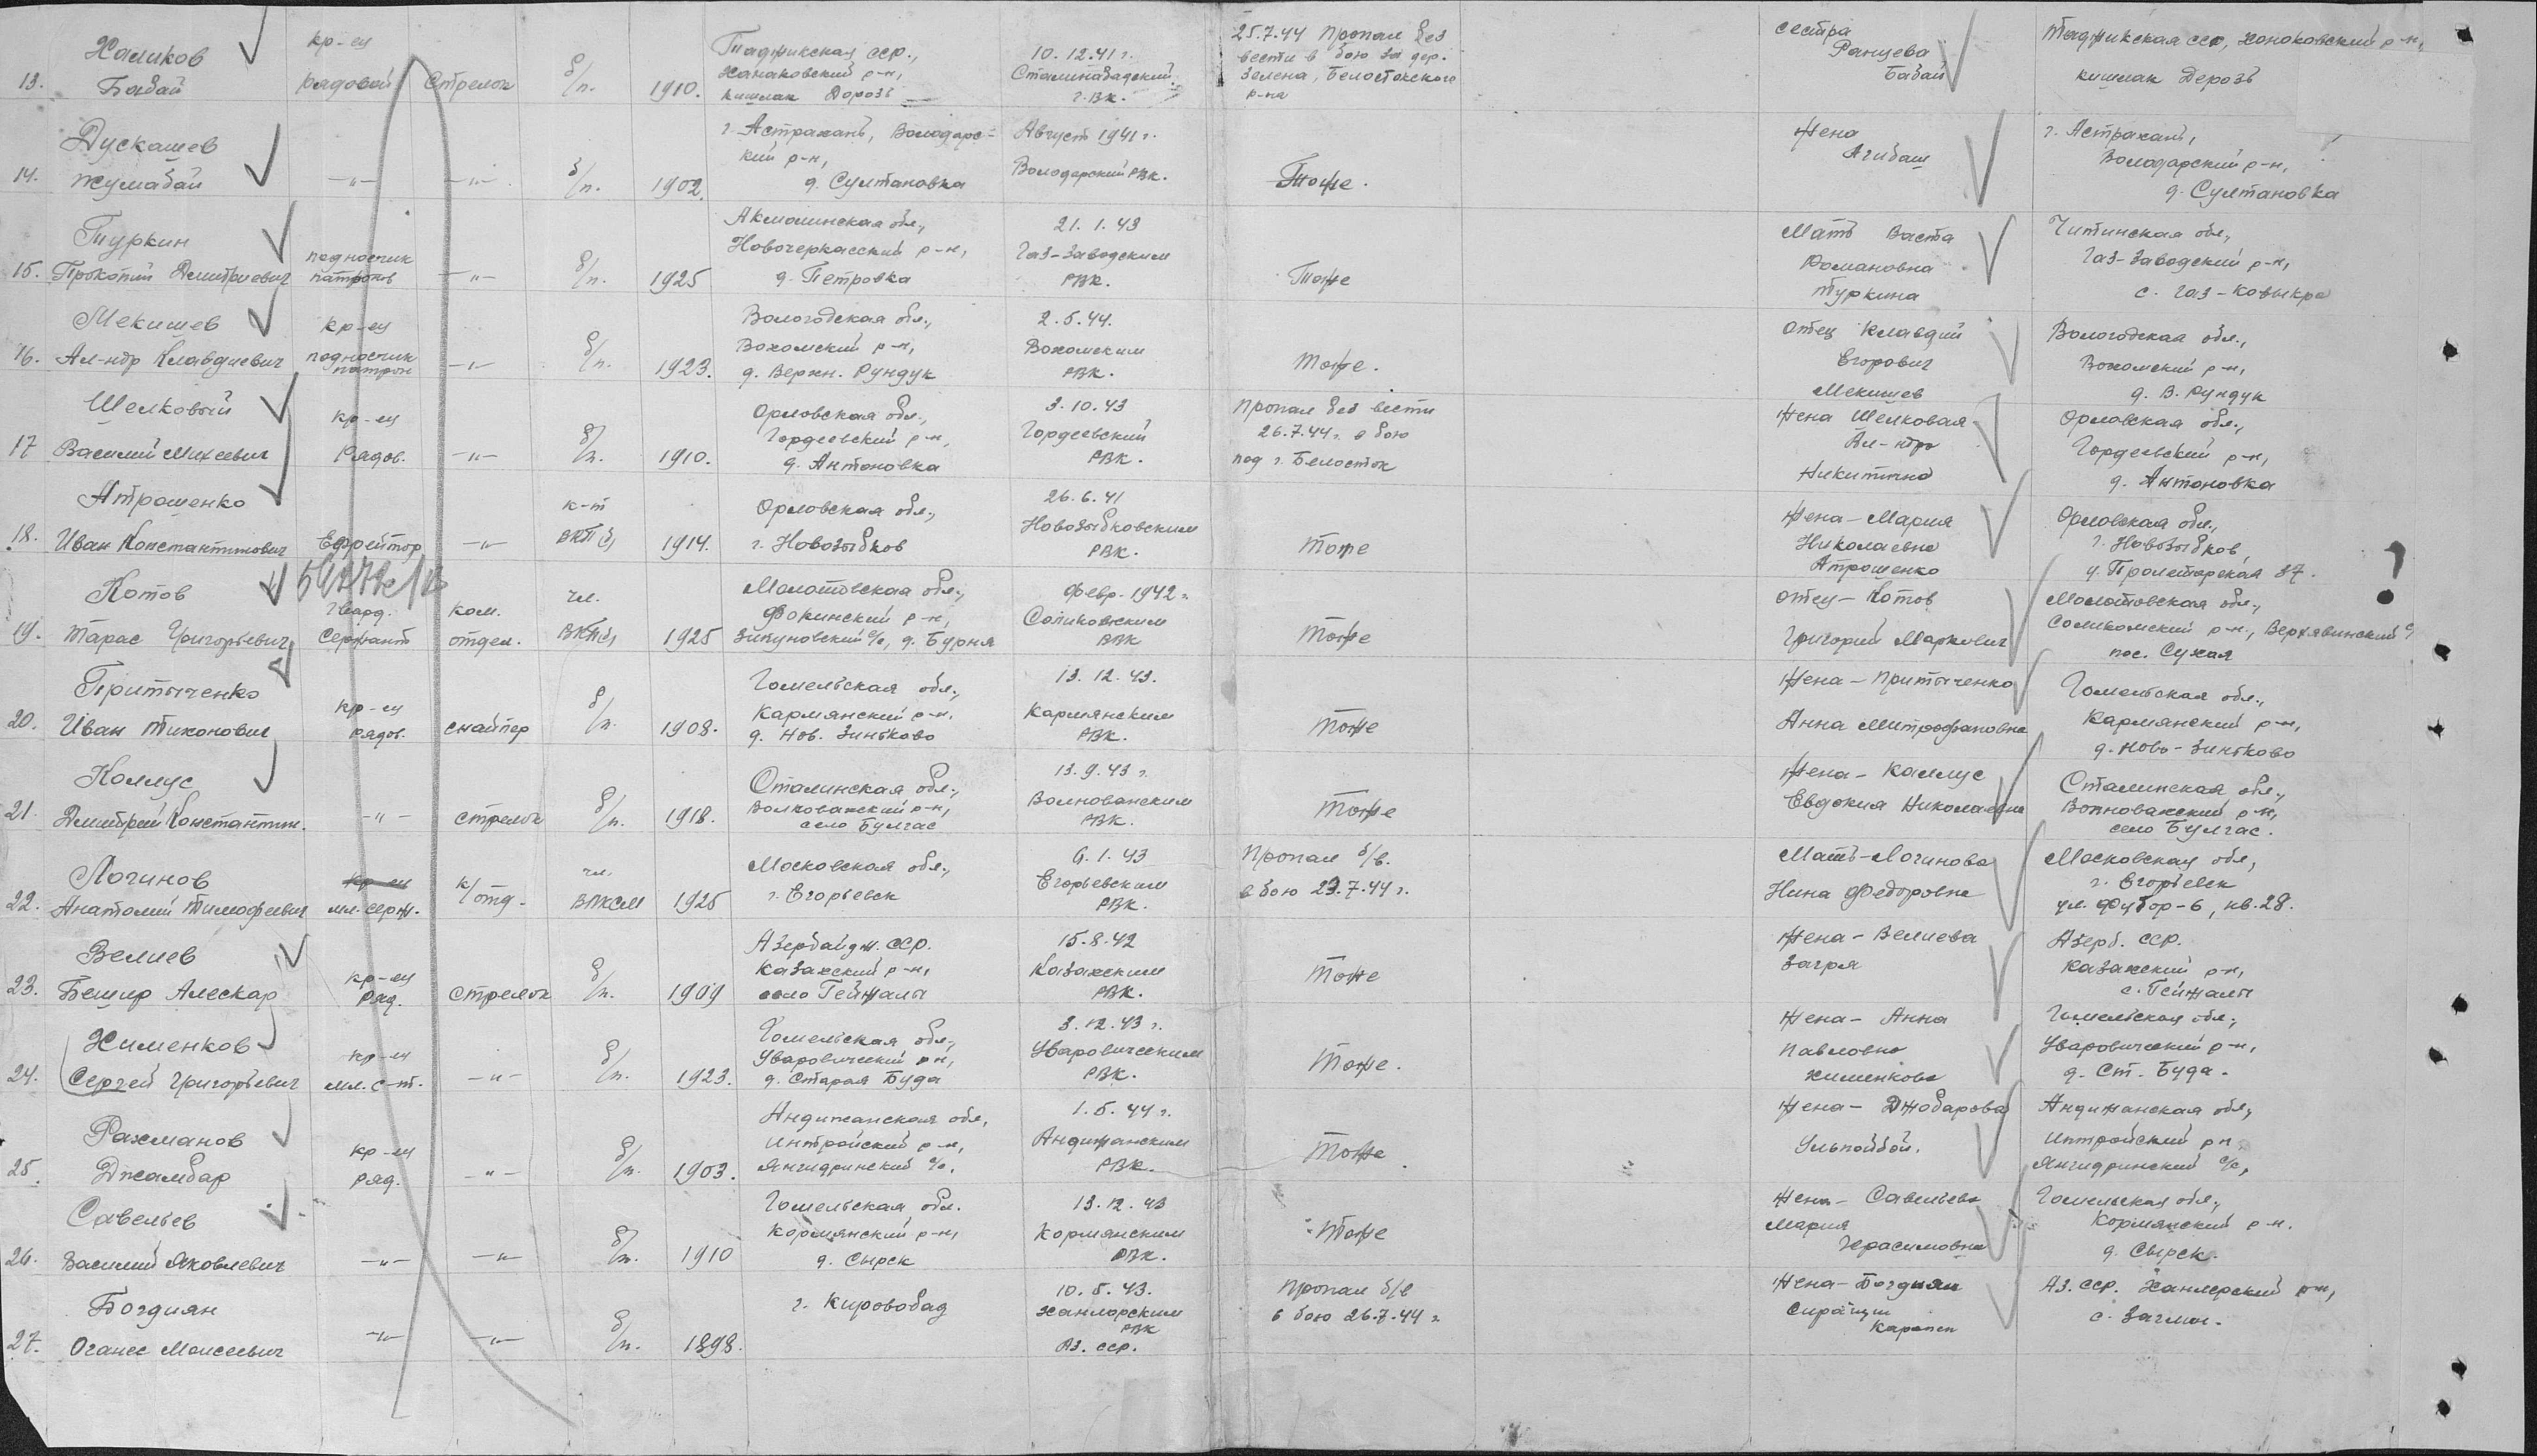 13. Халиков Бабай
кр-ец рядовой
Стрелок
б/п.
1910.
Таджикская сср.,
Ханаковский р-н,
кишлак Дорозь
10.12.41 г.
Сталинабадский
г.вк.
25.7.44 Пропал без
вести в бою за дер.
Зелена, Белостокского
р-на
сестра
Ранцева
Бабай
Таджикская сср, Ханаковский р-н,
кишлак Дерозь
14. Дускашев Жумабай
-"-
-"-
б/п.
1902.
г. Астрахань, Володарс-
кий р-н,
д. Султановка
Август 1941 г.
Володарский РВк.
Тоже.
Жена
Агибаш
г. Астрахань,
Володарский р-н,
д. Султановка
15. Туркин Прокопий Дмитриевич
подносчик
патронов
-"-
б/п.
1925
Акмолинская обл.,
Новочеркасский р-н,
д. Петровка
21.1.43
Газ-Заводским
РВк.
Тоже
Мать Васта
Романовна
Туркина
Читинская обл.,
Газ-Заводский р-н,
с. Газ-Ковыкра
16. Мекишев Ал-ндр Клавдиевич
кр-ец
подносчик
патрон
-"-
б/п.
1923.
Вологодская обл.,
Вохомский р-н,
д. Верхн. Рундук
2.5.44.
Вохомским
РВк.
Тоже.
Отец Клавдий
Егорович
Мекишев
Вологодская обл.,
Вохомский р-н,
д. В. Рундук
17 Шелковый Василий Михеевич
кр-ец
Рядов.
-"-
б/п.
1910.
Орловская обл.,
Гордеевский р-н,
д. Антоновка
3.10.43
Гордеевский
РВк.
Пропал без вести
26.7.44 г. в бою
под г. Белосток
Жена Шелковая
Ал-ндра
Никитична
Орловская обл.,
Гордеевский р-н,
д. Антоновка
18. Атрошенко Иван Константинович
Ефрейтор
-"-
к-т
ВКП(б)
1914.
Орловская обл.,
г. Новозыбков
26.6.41
Новозыбковским
РВк.
Тоже
Жена-Мария
Николаевна
Атрошенко
Орловская обл.,
г. Новозыбков,
у. Пролетарская 87.
19. Котов Тарас Григорьевич
Гвард.
Сержант
ком.
отдел.
чл.
ВКП(б)
1925
Молотовская обл.,
Фокинский р-н,
Зипуновский с/с, д. Бурня
Февр. 1942 г.
Соликамским
РВК
Тоже
Отец-Котов
Григорий Маркович
Молотовская обл.,
Соликамский р-н, Верхявинский
пос. Сухая
20. Притыченко Иван Тихонович
кр-ец
рядов.
снайпер
б/п.
1908.
Гомельская обл.,
Кармянский р-н,
д. Нов. Зиньково
13.12.43.
Кармянским
РВк.
Тоже
Жена-Притыченко
Анна Митрофановна
Гомельская обл.,
Кармянский р-н,
д. Ново-Зиньково
21. Коллус Дмитрий Константин.
-"-
стрелок
б/п.
1918.
Сталинская обл.,
Волновахский р-н,
село Булгас
13.9.43 г.
Волновахским
РВк.
Тоже
Жена-Каллус
Евдокия Николаевна
Сталинская обл.,
Волновахский р-н,
село Булгас.
22. Логинов Анатолий Тимофеевич
кр-ец
мл. серж.
к/отд.
чл.
ВЛКСМ
1925
Московская обл.,
г. Егорьевск
6.1.43
Егорьевским
РВк.
Пропал б/в.
в бою 23.7.44 г.
Мать-Логинова
Нина Федоровна
Московская обл,
г. Егорьевск
ул. Фубор-6, кв. 28.
23. Велиев Бешир Алескар
кр-ец
ряд.
Стрелок
б/п.
1909
Азербайдж. сср.
Казахский р-н,
село Гейжалы
15.8.42
Казахским
РВк.
Тоже
Жена-Велиева
Загря
Азерб. сср.
Казахский р-н,
с. Гейжалы
24. Хименков Сергей Григорьевич
кр-ец
мл. с-т.
-"-
б/п.
1923.
Гомельская обл.,
Уваровичский р-н,
д. Старая Буда
3.12.43 г.
Уваровическим
РВк.
Тоже.
Жена-Анна
Павловна
Хименкова
Гомельская обл.,
Уваровичский р-н,
д. Ст. Буда.
25. Рахманов Джамбар
кр-ец
ряд.
-"-
б/п.
1903.
Андижанская обл,
Интрайский р-н,
Янгидринский с/с,
1.5.44 г.
Андижанским
РВк.
Тоже
Жена-Джобарова
Ульпойбой.
Андижанская обл,
Интройский р-н
Янгидринский с/с,
26. Савельев Василий Яковлевич
-"-
-"-
б/п.
1910
Гомельская обл.
Кормянский р-н,
д. Сырск
13.12.43
Кормянским
РВк.
Тоже
Жена-Савельева
Мария
Герасимовна
Гомельская обл.,
Кормянский р-н.
д. Сырск.
27. Богдиян Оганес Моисеевич
-"-
-"-
б/п.
1898.
г. Кировобад
10.5.43.
Ханларским
РВк
Аз. сср.
Пропал б/в
в бою 26.7.44 г.
Жена-Богдиян
Карапет
Аз. сср. Ханлерский р-н,
с. Заглик.